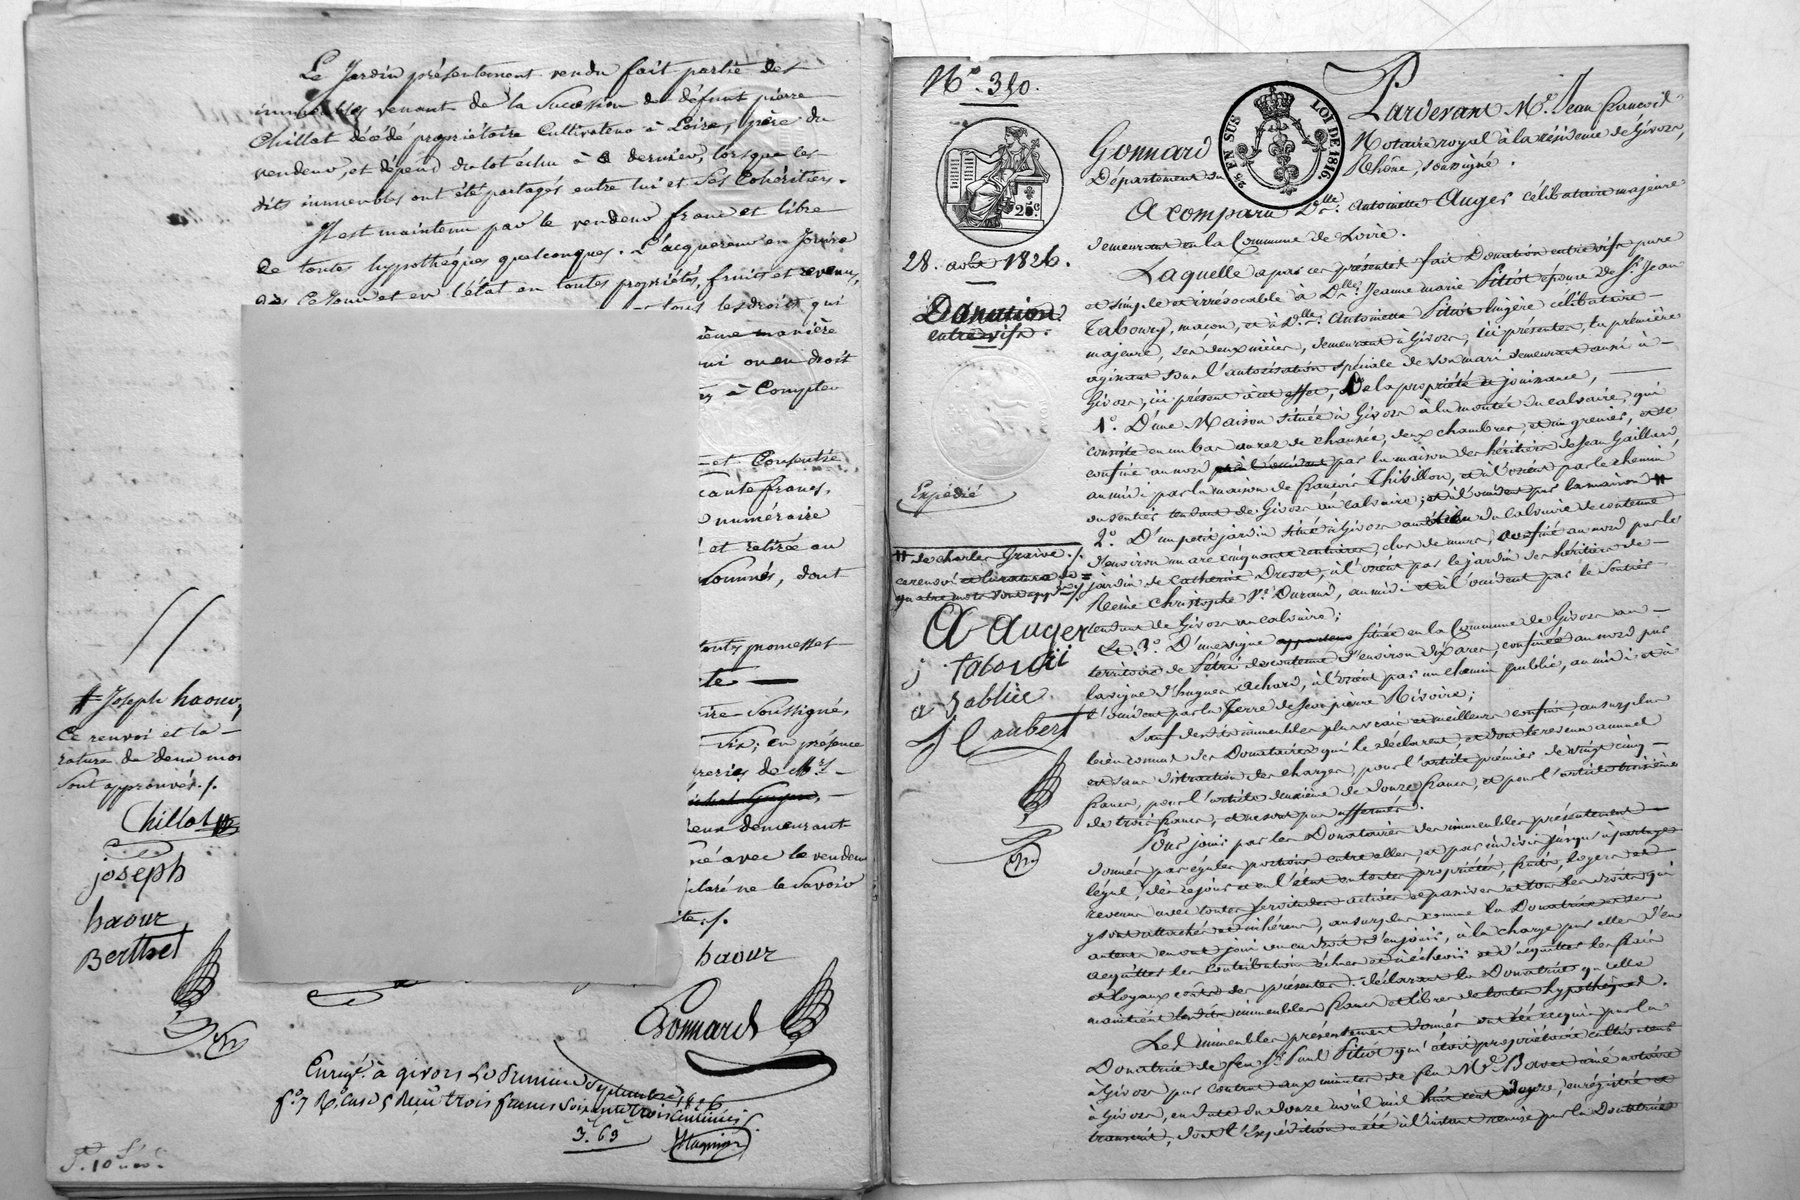 Le Jardin présentement vendu fait partie des
immeubles venant de la Succession de défunt pierre
Chillat décédé propriétaire Cultivateur à Loire, père du
vendeur, et dépend du lot échu à ce dernier, lorsque les
dits immeubles ont été partagés entre lui et Ses Cohéritiers.
Il est maintenu par le vendeur franc et libre
de toutes hypothèques quelconques. L'acquereur en Jouira
dès Ce Jour et en l'état en toutes propriétés, fruits et revenus,
tous les droits qui
même manière
oui ou en droit
à Compter
et Consentie
ante francs,
numéraire
et retirée au
Sommés, dont
toutes promesses
te
ire Soussigné,
Six; en présence
de Mrs
demeurant
né avec le vendeur
claré ne le Savoir
ite./.
# Joseph haour,
Ce renvoi et la
rature de deux mo
Sont approuvés./.
Chillat
joseph
haour
Berthet
haour
Gonnard
Enregé. à givors Le Premier Septembre 1826
fo. 7 Ro. Case 5 Reçu trois francs Soixante trois Centimes
3.63
No. 350.
25c
2es EN SUS LOI DE 1816.
28. août 1826.
Donation
entre vifs.
Expédié
Pardevant Me. Jean francois
Gonnard Notaire royal à la résidence de Givors,
Département du Rhône, soussigné.
A comparu Dlle. Antoinette Auger célibataire majeure
demeurant en la Commune de Loire.
Laquelle a par ces présentes fait Donation entre vifs pure
et simple et irrévocable à Dlle. Jeanne marie Pitiot épouse de Sr. Jean
Tabourg, macon, et à Dlle. Antoinette Pitiot lingère célibataire
majeure, ses deux nièces, demeurant à Givors, ici présentes, la première
agissant sous l'autorisation spéciale de son mari demeurant aussi à
Givors, ici présent à cet effet, De la propriété et jouissance,
1o. D'une Maison située à Givors à la montée du calvaire, qui
consiste en un bas au rez de chaussée, deux chambres, et un grenier, et se
confine au nord par la maison des héritiers de Jean Gaillard,
au midi par la maison de francois Thivillon, et à l'orient par le chemin
ou sentier tendant de Givors au Calvaire; et à l'occident par la maison #
2o. D'un petit jardin situé à Givors du calvaire de contenue
d'environ un are cinquante centiares, clos de murs, confiné au nord par le
jardin de Catherine Drevet, à l'orient par le jardin des héritiers de
Reine Christophe Ve. Durand, au midi et à l'occident par le Sentier
tendant de Givors au calvaire;
Et 3o. D'une vigne située en la Commune de Givors au
territoire de de contenue d'environ dix ares, confinée au nord par
la vigne d'hugues Achard, à l'orient par un chemin public, au midi et à
l'occident par la Terre de Jean pierre Rivoire;
# de charles Graive ./.
ce renvoi et la rature de
quatre mots sont approuvés ./.
A Auger
j tabourg
a Sablier
J Coubert
Sauf desdits immeubles plus vrais et meilleurs confins, au surplus
bien connus des Donataires qui le déclarent, et dont le revenu annuel
est sans distraction des charges, pour l'article premier de vingt cinq
francs, pour l'article deuxième de douze francs, et pour l'article troisième
de trois francs, et ne sont pas affermés.
Pour jouir par les Donataires des immeubles présentement
donnés par égales portions entre elles, et par indivis jusqu'à partage
légal, dès ce jour et en l'état en toutes propriétés, fruits, loyers et
revenus avec toutes servitudes actives et passives et tous les droits qui
y sont attachés et inhérens, au surplus comme la Donatrice et ses
auteurs en ont joui ou eu droit d'en jouir, à la charge par elles d'en
acquitter les contributions échues et à échoir et d'acquitter les frais
et loyaux coûts des présentes. déclarant la Donatrice qu'elle
maintient lesdits immeubles francs et libres de toutes hypothèques.
Les immeubles présentement donnés ont été acquis par la
Donatrice de feu Sr. Paul Pitiot qui étoit propriétaire cultivateur
à Givors par contrat aux minutes de feu Me. Bovet ainé notaire
à Givors, en date du douze avril mil huit cent douze, enregistré et
transcrit, dont l'expédition a été à l'instant remise par la Donatrice